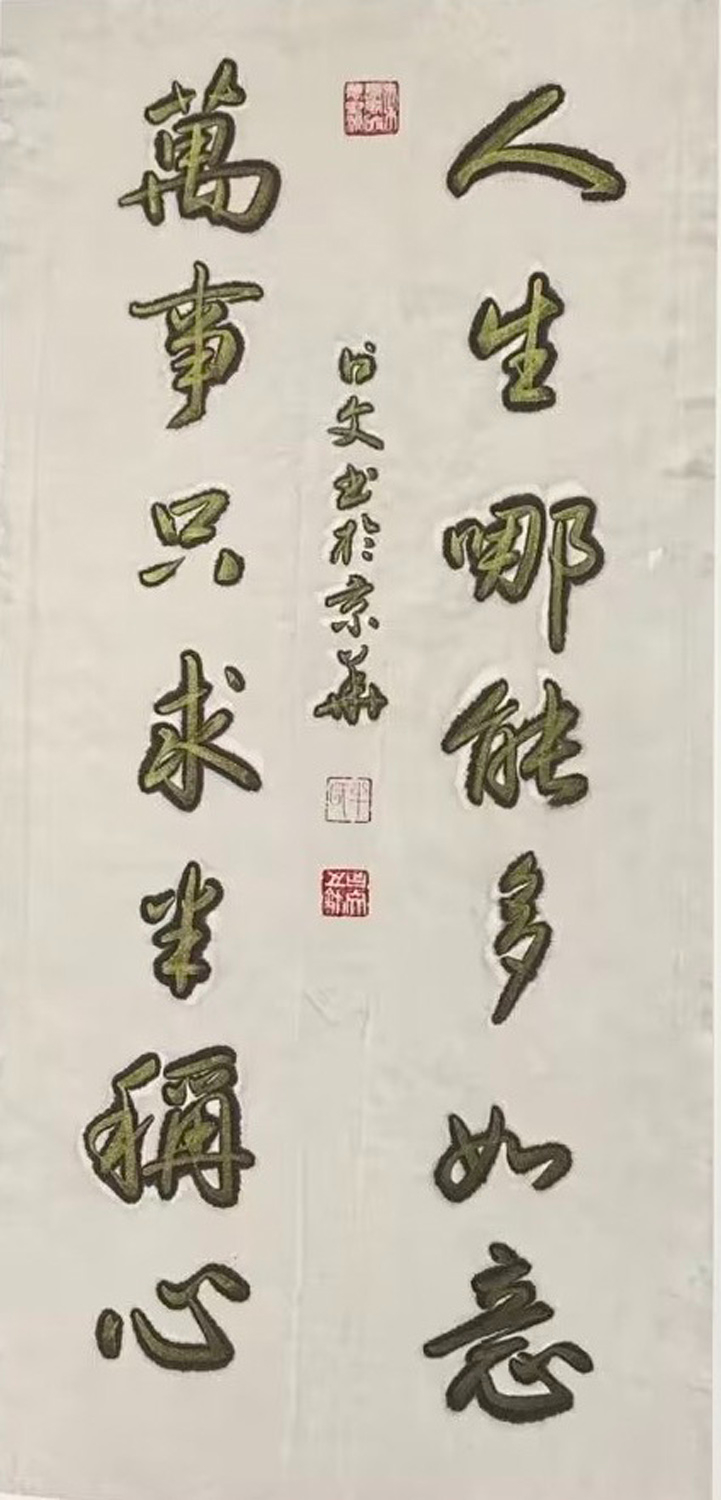 人生哪能多如意
萬事只求半稱心
文书於京華